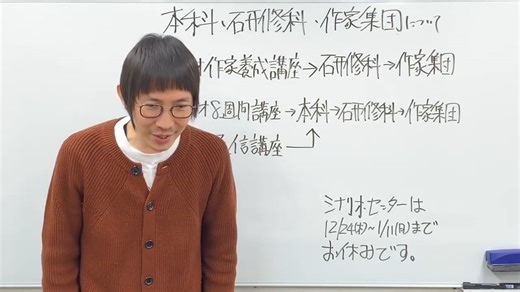 本科・研修科・作家集団について
作家養成講座→研修科→作家集団
8週間講座→本科→研修科→作家集団
信講座
シナリオ・センターは
12/24(木)~1/11(月)まで
お休みです。